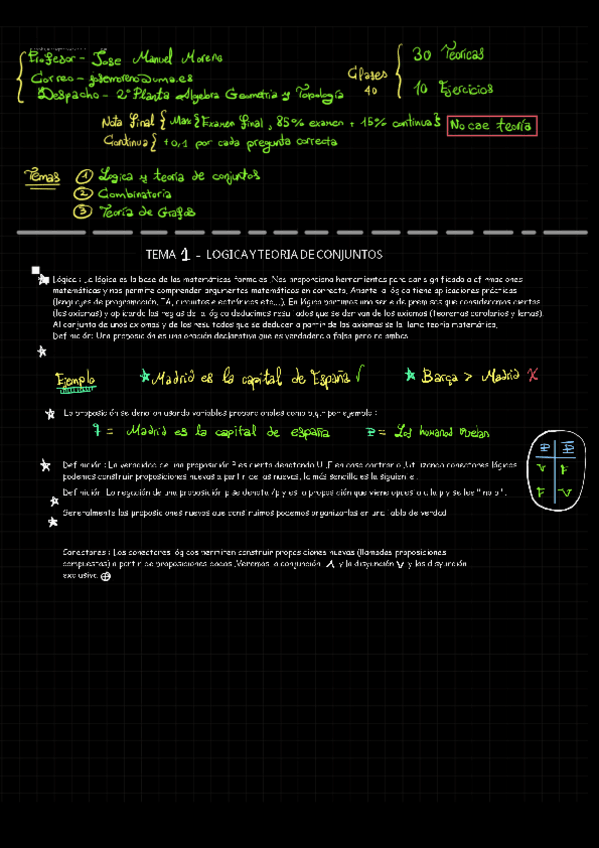 Profesor - Jose Manuel Moreno
Correo - josemoreno@uma.es
Despacho - 2ª Planta Algebra Geometria y Topología
Clases 40
30 Teoricas
10 Ejercicios
Nota Final { Max { Examen final, 85% examen + 15% continua }
No cae teoría
Continua { +0,1 por cada pregunta correcta
Temas
1 Logica y teoría de conjuntos
2 Combinatoria
3 Teoría de Grafos
TEMA 1 - LOGICA Y TEORIA DE CONJUNTOS
Lógica : La lógica es la base de las matemáticas formales. Nos proporciona herramientas para dar significado a afirmaciones
matemáticas y nos permite comprender argumentos matemáticos en correcto. Aparte la lógica tiene aplicaciones prácticas
(lenguajes de programación, IA, circuitos electrónicos etc...). En lógica partimos una serie de premisas que consideramos ciertas
(los axiomas) y aplicando las reglas de la lógica deducimos resultados que se derivan de los axiomas (Teoremas corolarios y lemas).
Al conjunto de unos axiomas y de los resultados que se deducen a partir de los axiomas se la llama teoria matemática.
Definición: Una proposición es una oración declarativa que es verdadera o falsa pero no ambos
Ejemplo
Madrid es la capital de España ✓
Barça > Madrid X
La proposición se denotan usando variables proposicionales como p,q,r por ejemplo :
q = Madrid es la capital de españa
P = Los humanos vuelan
Definición : La veracidad de una proposición P es cierta denotando V ,F en caso contrario .Utilizando conectores lógicos
podemos construir proposiciones nuevas a partir de las nuevas, la más sencilla es la siguiente .
Definición La negación de una proposición p se denota /p y es la proposición que viene opuesta a la p y se lee " no p ".
Generalmente las proposiciones nuevas que construimos podemos organizarlas en una tabla de verdad
P P̅
V F
F V
Conectores : Los conectores lógicos permiten construir proposiciones nuevas (llamadas proposiciones
compuestas) a partir de proposiciones dadas .Veremos la conjunción ∧ y la disyunción ∨ y las disyunción
exclusiva ⊕